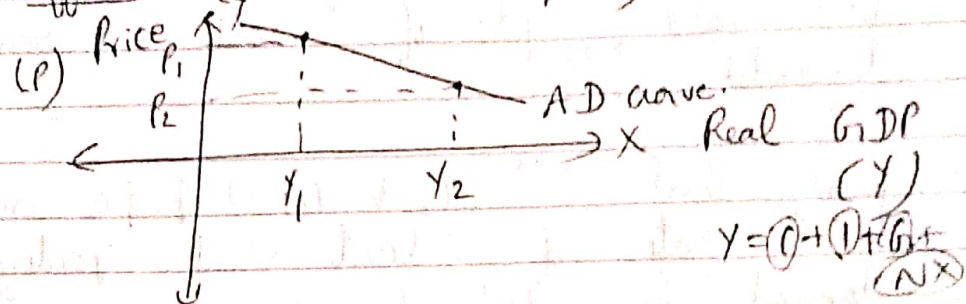 Price
(P)
P1
P2
AD curve.
X Real GDP
(Y)
Y1 Y2
Y = C + I + G +
NX